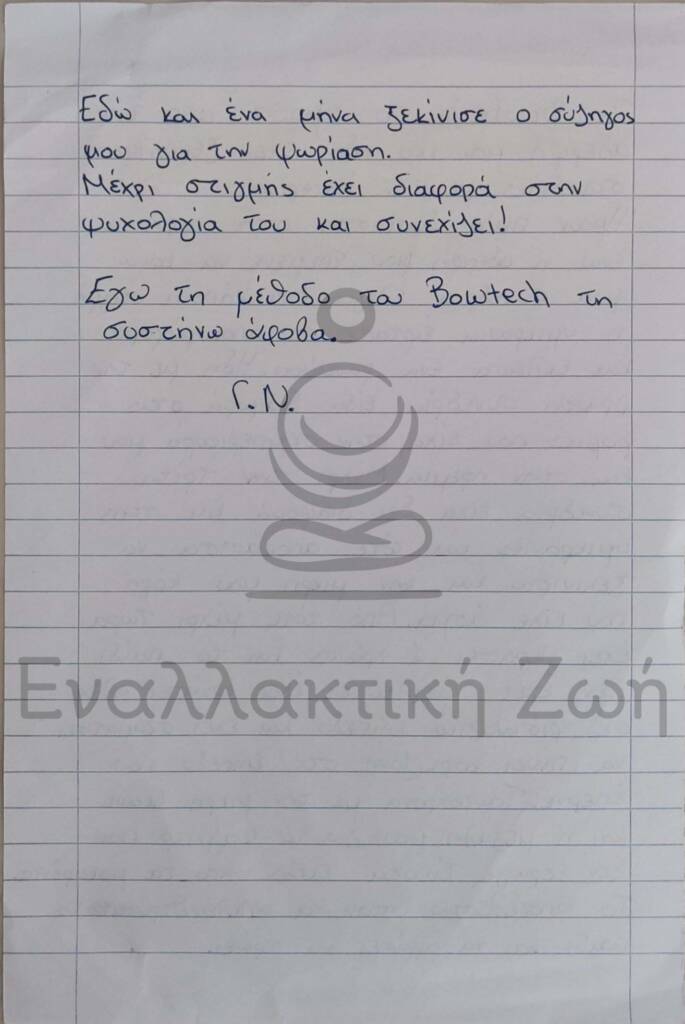 Εδώ και ένα μήνα ξεκίνισε ο σύζηγος
μου για την ψωρίαση.
Μέχρι στιγμής έχει διαφορά στην
ψυχολογία του και συνεχίζει!
Εγω τη μέθοδο του Bowtech τη
συστήνω άφοβα.
Γ.Ν.
Εναλλακτική Ζωή